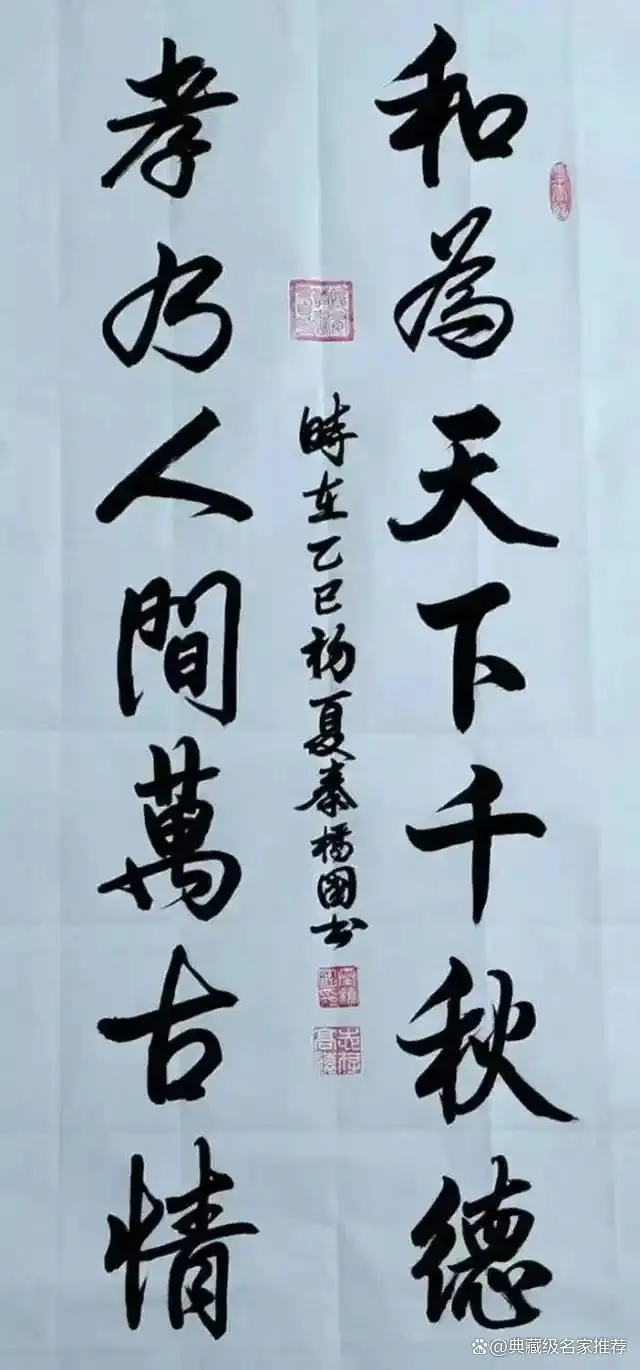 和為天下千秋德
時在乙巳初夏秦橋國书
孝乃人間萬古情
@典藏级名家推荐